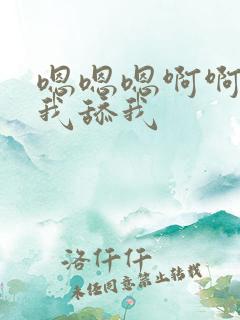 嗯嗯嗯啊啊
我舔我
洛仟仟
未经同意禁止转载